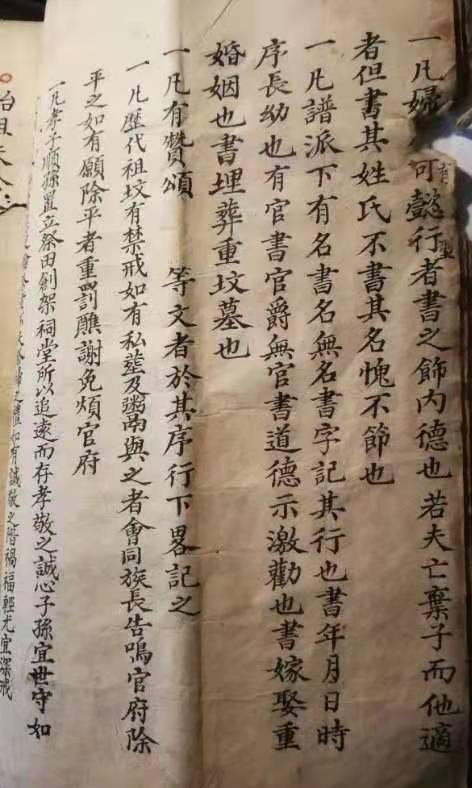 一凡婦可懿行者書之飾內德也若夫亡棄子而他適
者但書其姓氏不書其名愧不節也
一凡譜派下有名書名無名書字記其行也書年月日時
序長幼也有官書官爵無官書道德示激勸也書嫁娶重
婚姻也書埋葬重坟墓也
一凡有贊頌 等文者於其序行下畧記之
一凡歷代祖坟有禁戒如有私塟及鬻與之者會同族長告鳴官府除
平之如有願除平者重罰醮謝免煩官府
一凡孝子順孫置立祭田創架祠堂所以追遠而存孝敬之誠心子孫宜世守如
之 如有誠敬之 禍福輕尤宜深戒
始祖